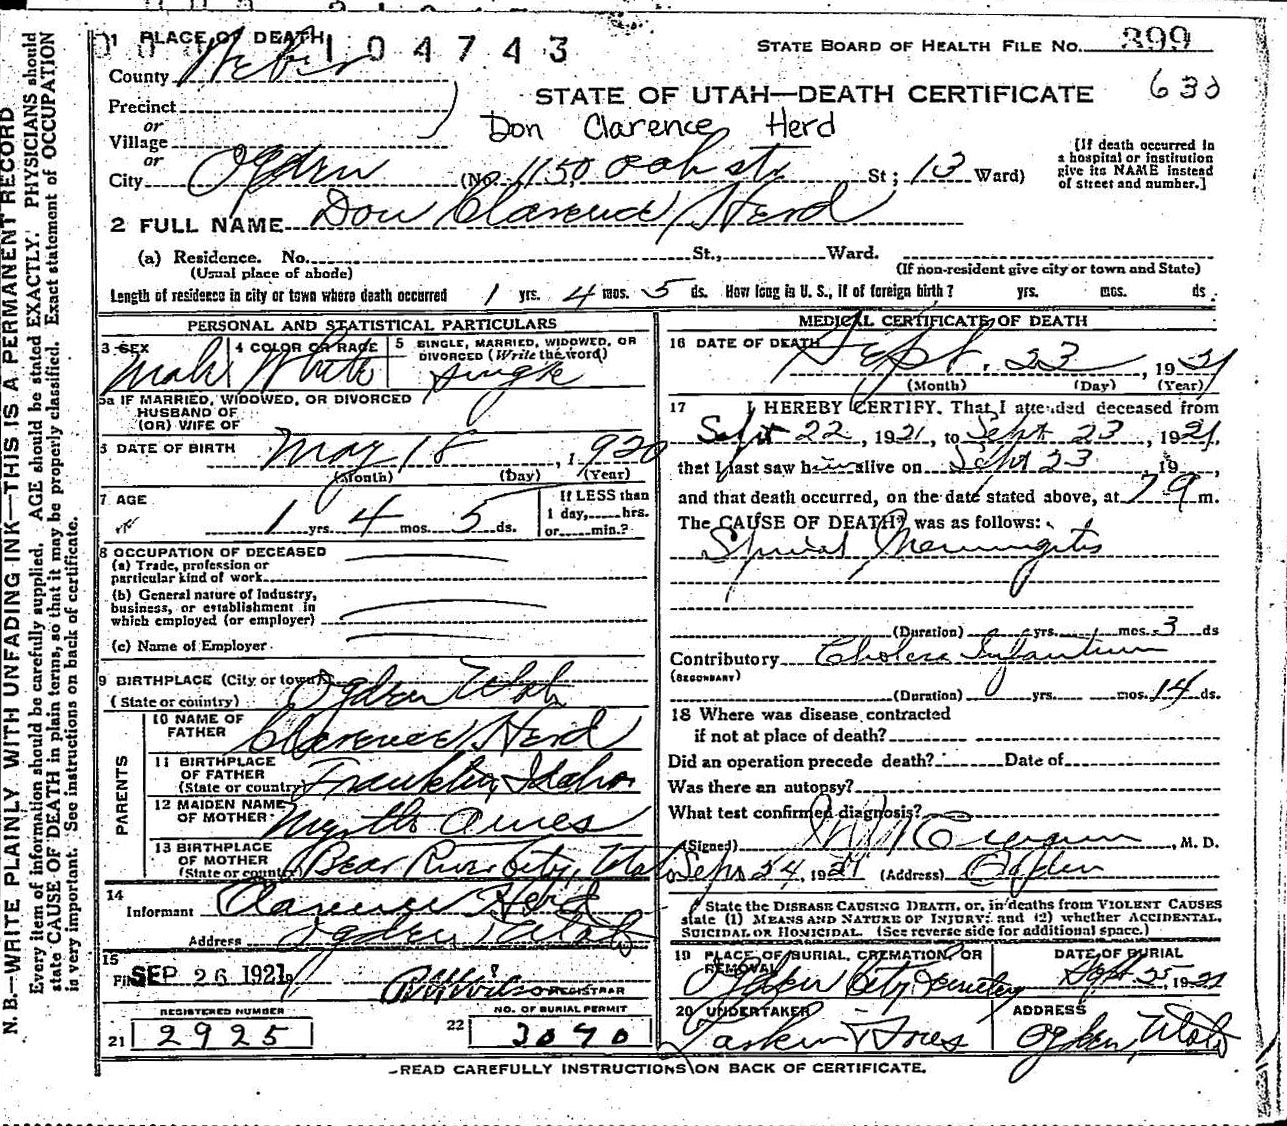 104743
STATE BOARD OF HEALTH FILE No. 399
1 PLACE OF DEATH
County Weber
STATE OF UTAH—DEATH CERTIFICATE 630
Precinct
or
Village
Don Clarence Herd
or
City Ogden (No. 1150 St; 13 Ward)
[If death occurred in
a hospital or institution
give its NAME instead
of street and number.]
2 FULL NAME Don Clarence Herd
(a) Residence. No. St., Ward.
(Usual place of abode) (If non-resident give city or town and State)
Length of residence in city or town where death occurred 1 yrs. 4 mos. 5 ds. How long in U. S., if of foreign birth? yrs. mos. ds.
PERSONAL AND STATISTICAL PARTICULARS
3 SEX 4 COLOR OR RACE 5 SINGLE, MARRIED, WIDOWED, OR
DIVORCED (Write the word)
Male White Single
5a IF MARRIED, WIDOWED, OR DIVORCED
HUSBAND OF
(OR) WIFE OF
6 DATE OF BIRTH May 18, 1920
(Month) (Day) (Year)
7 AGE If LESS than
1 yrs. 4 mos. 5 ds. 1 day, hrs.
or min.?
8 OCCUPATION OF DECEASED
(a) Trade, profession or
particular kind of work
(b) General nature of Industry,
business, or establishment in
which employed (or employer)
(c) Name of Employer
9 BIRTHPLACE (City or town)
(State or country) Ogden Utah
PARENTS
10 NAME OF
FATHER Clarence Herd
11 BIRTHPLACE
OF FATHER
(State or country) Franklin, Idaho
12 MAIDEN NAME
OF MOTHER Myrtle
13 BIRTHPLACE
OF MOTHER
(State or country) Bear River City, Utah
14
Informant Clarence Herd
Address Ogden Utah
15
Filed SEP 26 1921 19 Wilson REGISTRAR
REGISTERED NUMBER NO. OF BURIAL PERMIT
21 2925 22 3070
MEDICAL CERTIFICATE OF DEATH
16 DATE OF DEATH Sept. 23, 1921
(Month) (Day) (Year)
17 I HEREBY CERTIFY, That I attended deceased from
Sept 22, 1921, to Sept 23, 1921,
that I last saw him alive on Sept 23, 19 ,
and that death occurred, on the date stated above, at m.
The CAUSE OF DEATH? was as follows:
Spinal Meningitis
(Duration) yrs. mos. 3 ds
Contributory Cholera Infantum
(SECONDARY)
(Duration) yrs. mos. 14 ds.
18 Where was disease contracted
if not at place of death?
Did an operation precede death? Date of
Was there an autopsy?
What test confirmed diagnosis?
(Signed) , M. D.
Sept 24, 1921 (Address) Ogden
State the DISEASE CAUSING DEATH, or, in deaths from VIOLENT CAUSES
state (1) MEANS AND NATURE OF INJURY; and (2) whether ACCIDENTAL,
SUICIDAL OR HOMICIDAL. (See reverse side for additional space.)
19 PLACE OF BURIAL, CREMATION, OR
REMOVAL DATE OF BURIAL
Ogden City Cemetery Sept 25, 1921
20 UNDERTAKER ADDRESS
Larkin Ogden, Utah
READ CAREFULLY INSTRUCTIONS ON BACK OF CERTIFICATE.
N. B.—WRITE PLAINLY WITH UNFADING INK—THIS IS A PERMANENT RECORD
Every item of information should be carefully supplied. AGE should be stated EXACTLY. PHYSICIANS should
state CAUSE OF DEATH in plain terms, so that it may be properly classified. Exact statement of OCCUPATION
is very important. See instructions on back of certificate.